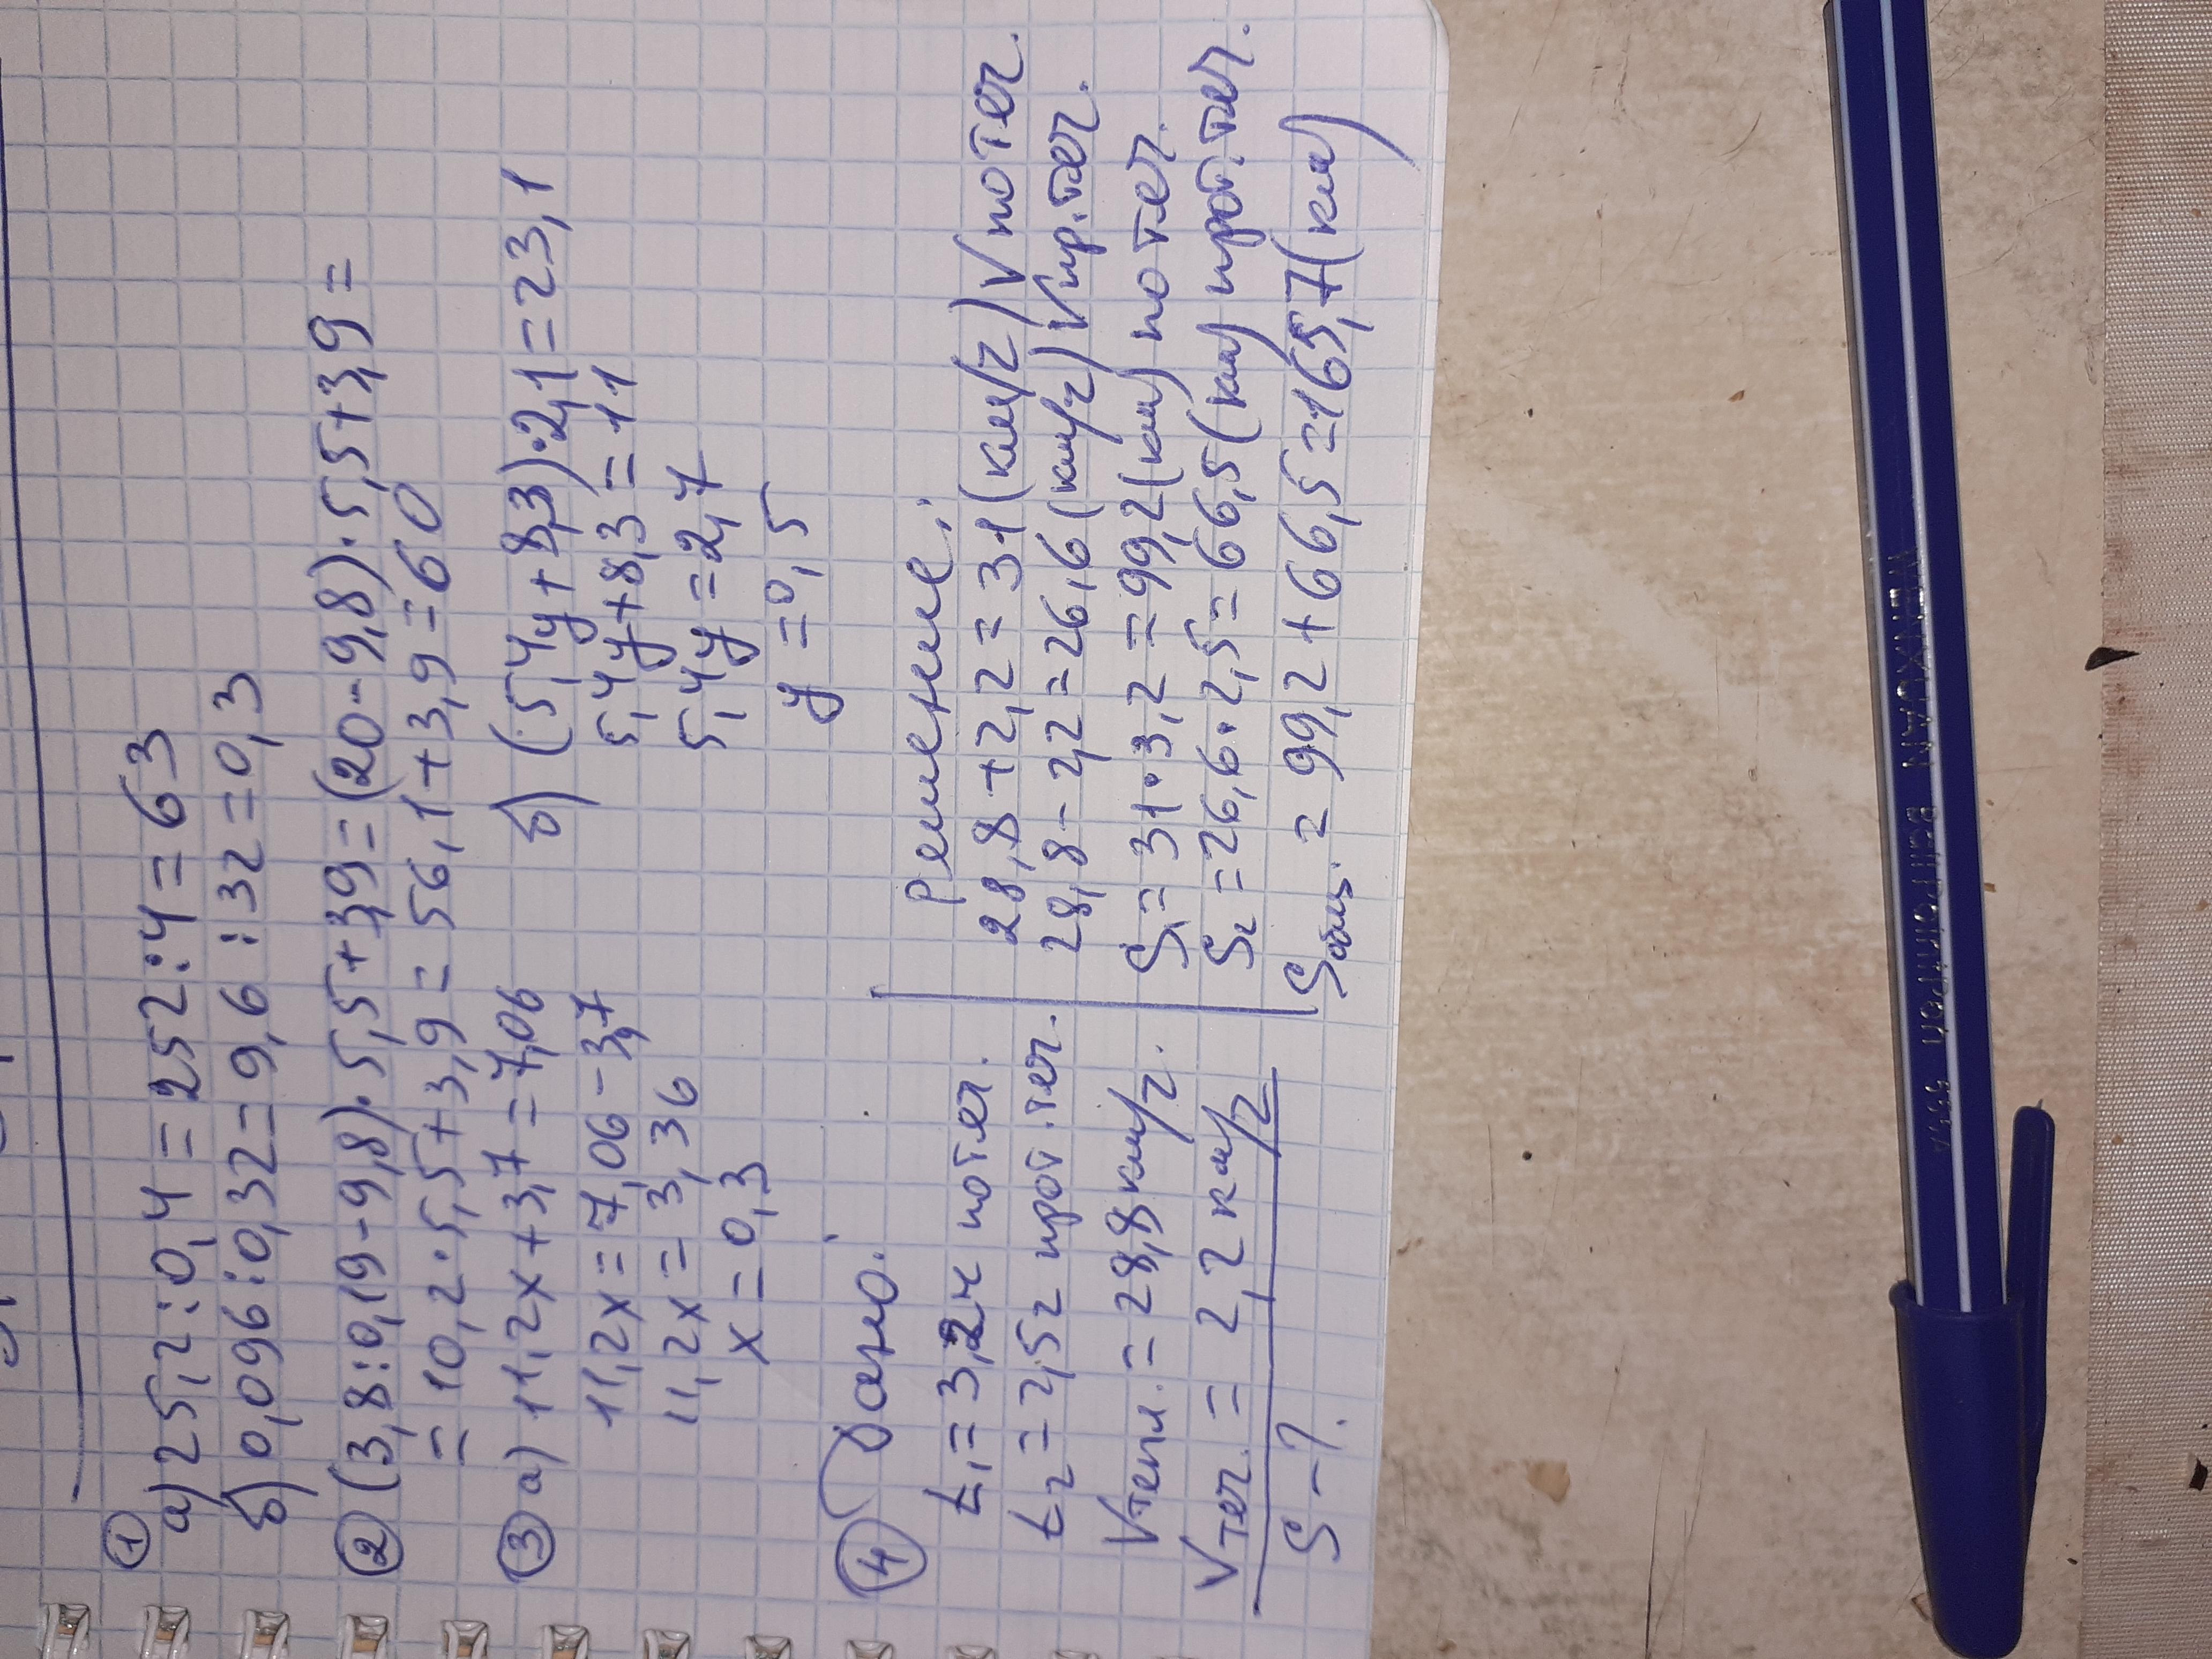 ①
а) 25,2:0,4=252:4=63
б) 0,096:0,32=9,6:32=0,3
② (3,8:0,19-9,8)·5,5+3,9=(20-9,8)·5,5+3,9=
=10,2·5,5+3,9=56,1+3,9=60
③ а) 11,2x+3,7=7,06
11,2x=7,06-3,7
11,2x=3,36
x=0,3
б) (5,4y+8,3)·2,1=23,1
5,4y+8,3=11
5,4y=2,7
y=0,5
④ Дано:
t₁=3,2ч по теч.
t₂=2,5ч прот.теч.
Vтепл.=28,8км/ч.
Vтеч.=2,2км/ч
S-?
Решение:
28,8+2,2=31(км/ч) Vпотеч.
28,8-2,2=26,6(км/ч) Vпр.теч.
S₁=31·3,2=99,2(км) по теч.
S₂=26,6·2,5=66,5(км) прот.теч.
Sобщ.=99,2+66,5=165,7(км)
BallPoint Pen